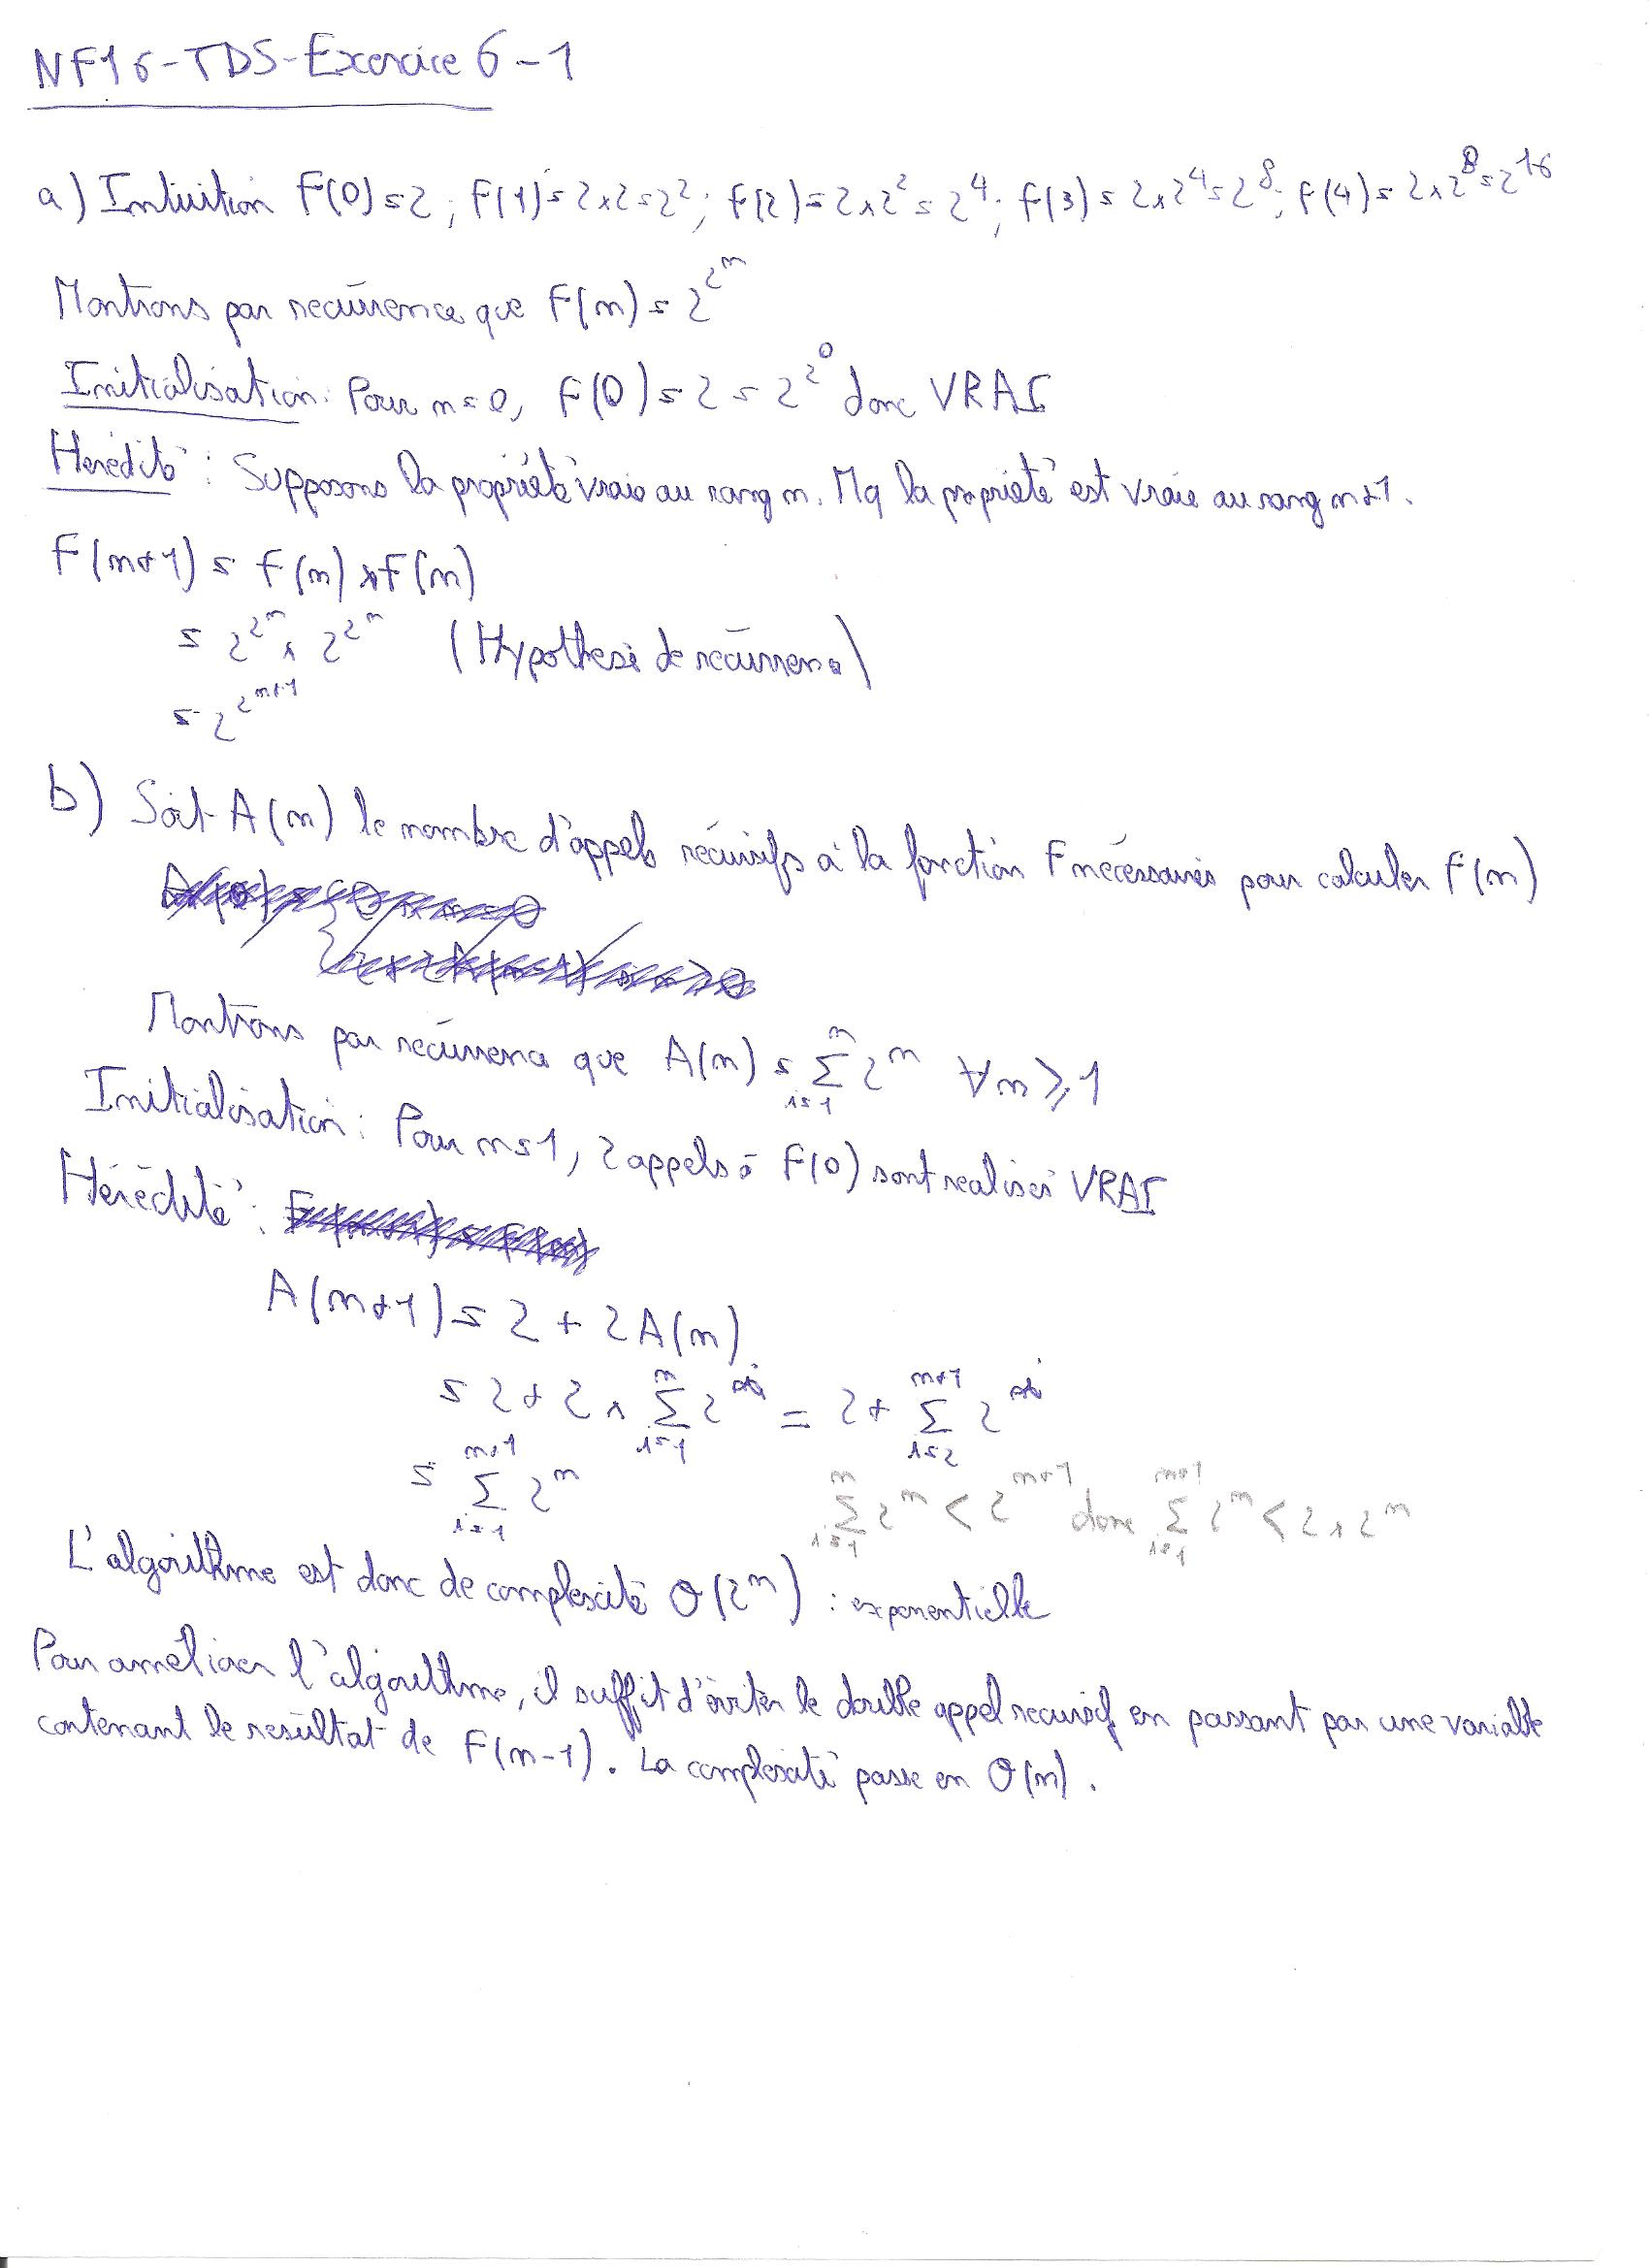 NF16-TD5-Exercice 6-1
a) Intuition F(0)=2; F(1)=2×2=2²; F(2)=2×2²=2⁴; F(3)=2×2⁴=2⁸; F(4)=2×2⁸=2¹⁶
Montrons par récurrence que F(n)=2^2^n
Initialisation: Pour n=0, F(0)=2=2^2^0 donc VRAI
Hérédité: Supposons la propriété vraie au rang n. Mq la propriété est vraie au rang n+1.
F(n+1)=F(n)×F(n)
=2^2^n × 2^2^n (Hypothèse de récurrence)
=2^2^(n+1)
b) Soit A(n) le nombre d'appels récursifs à la fonction F nécessaires pour calculer F(n)
Montrons par récurrence que A(n)=∑_{i=1}^{n} 2^n ∀n⩾1
Initialisation: Pour n=1, 2 appels à F(0) sont réalisés VRAI
Hérédité:
A(n+1)=2+2A(n)
=2+2×∑_{i=1}^{n} 2^i = 2+∑_{i=2}^{n+1} 2^i
=∑_{i=1}^{n+1} 2^n
∑_{i=1}^{n} 2^n < 2^{n+1} donc ∑_{i=1}^{n+1} 2^n < 2×2^n
L'algorithme est donc de complexité O(2^n): exponentielle
Pour améliorer l'algorithme, il suffit d'éviter le double appel récursif en passant par une variable
contenant le résultat de F(n-1). La complexité passe en O(n).